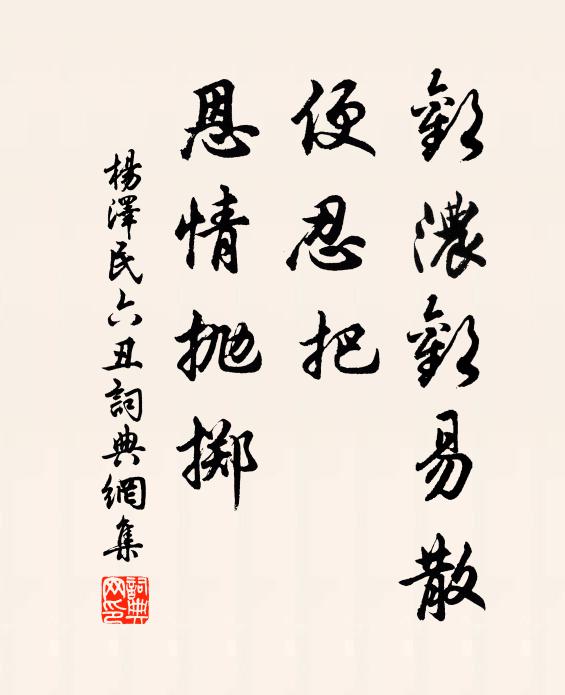 歡濃歡易散
便忍把
恩情抛擲
楊澤民六丑詞典網集
詞典網印